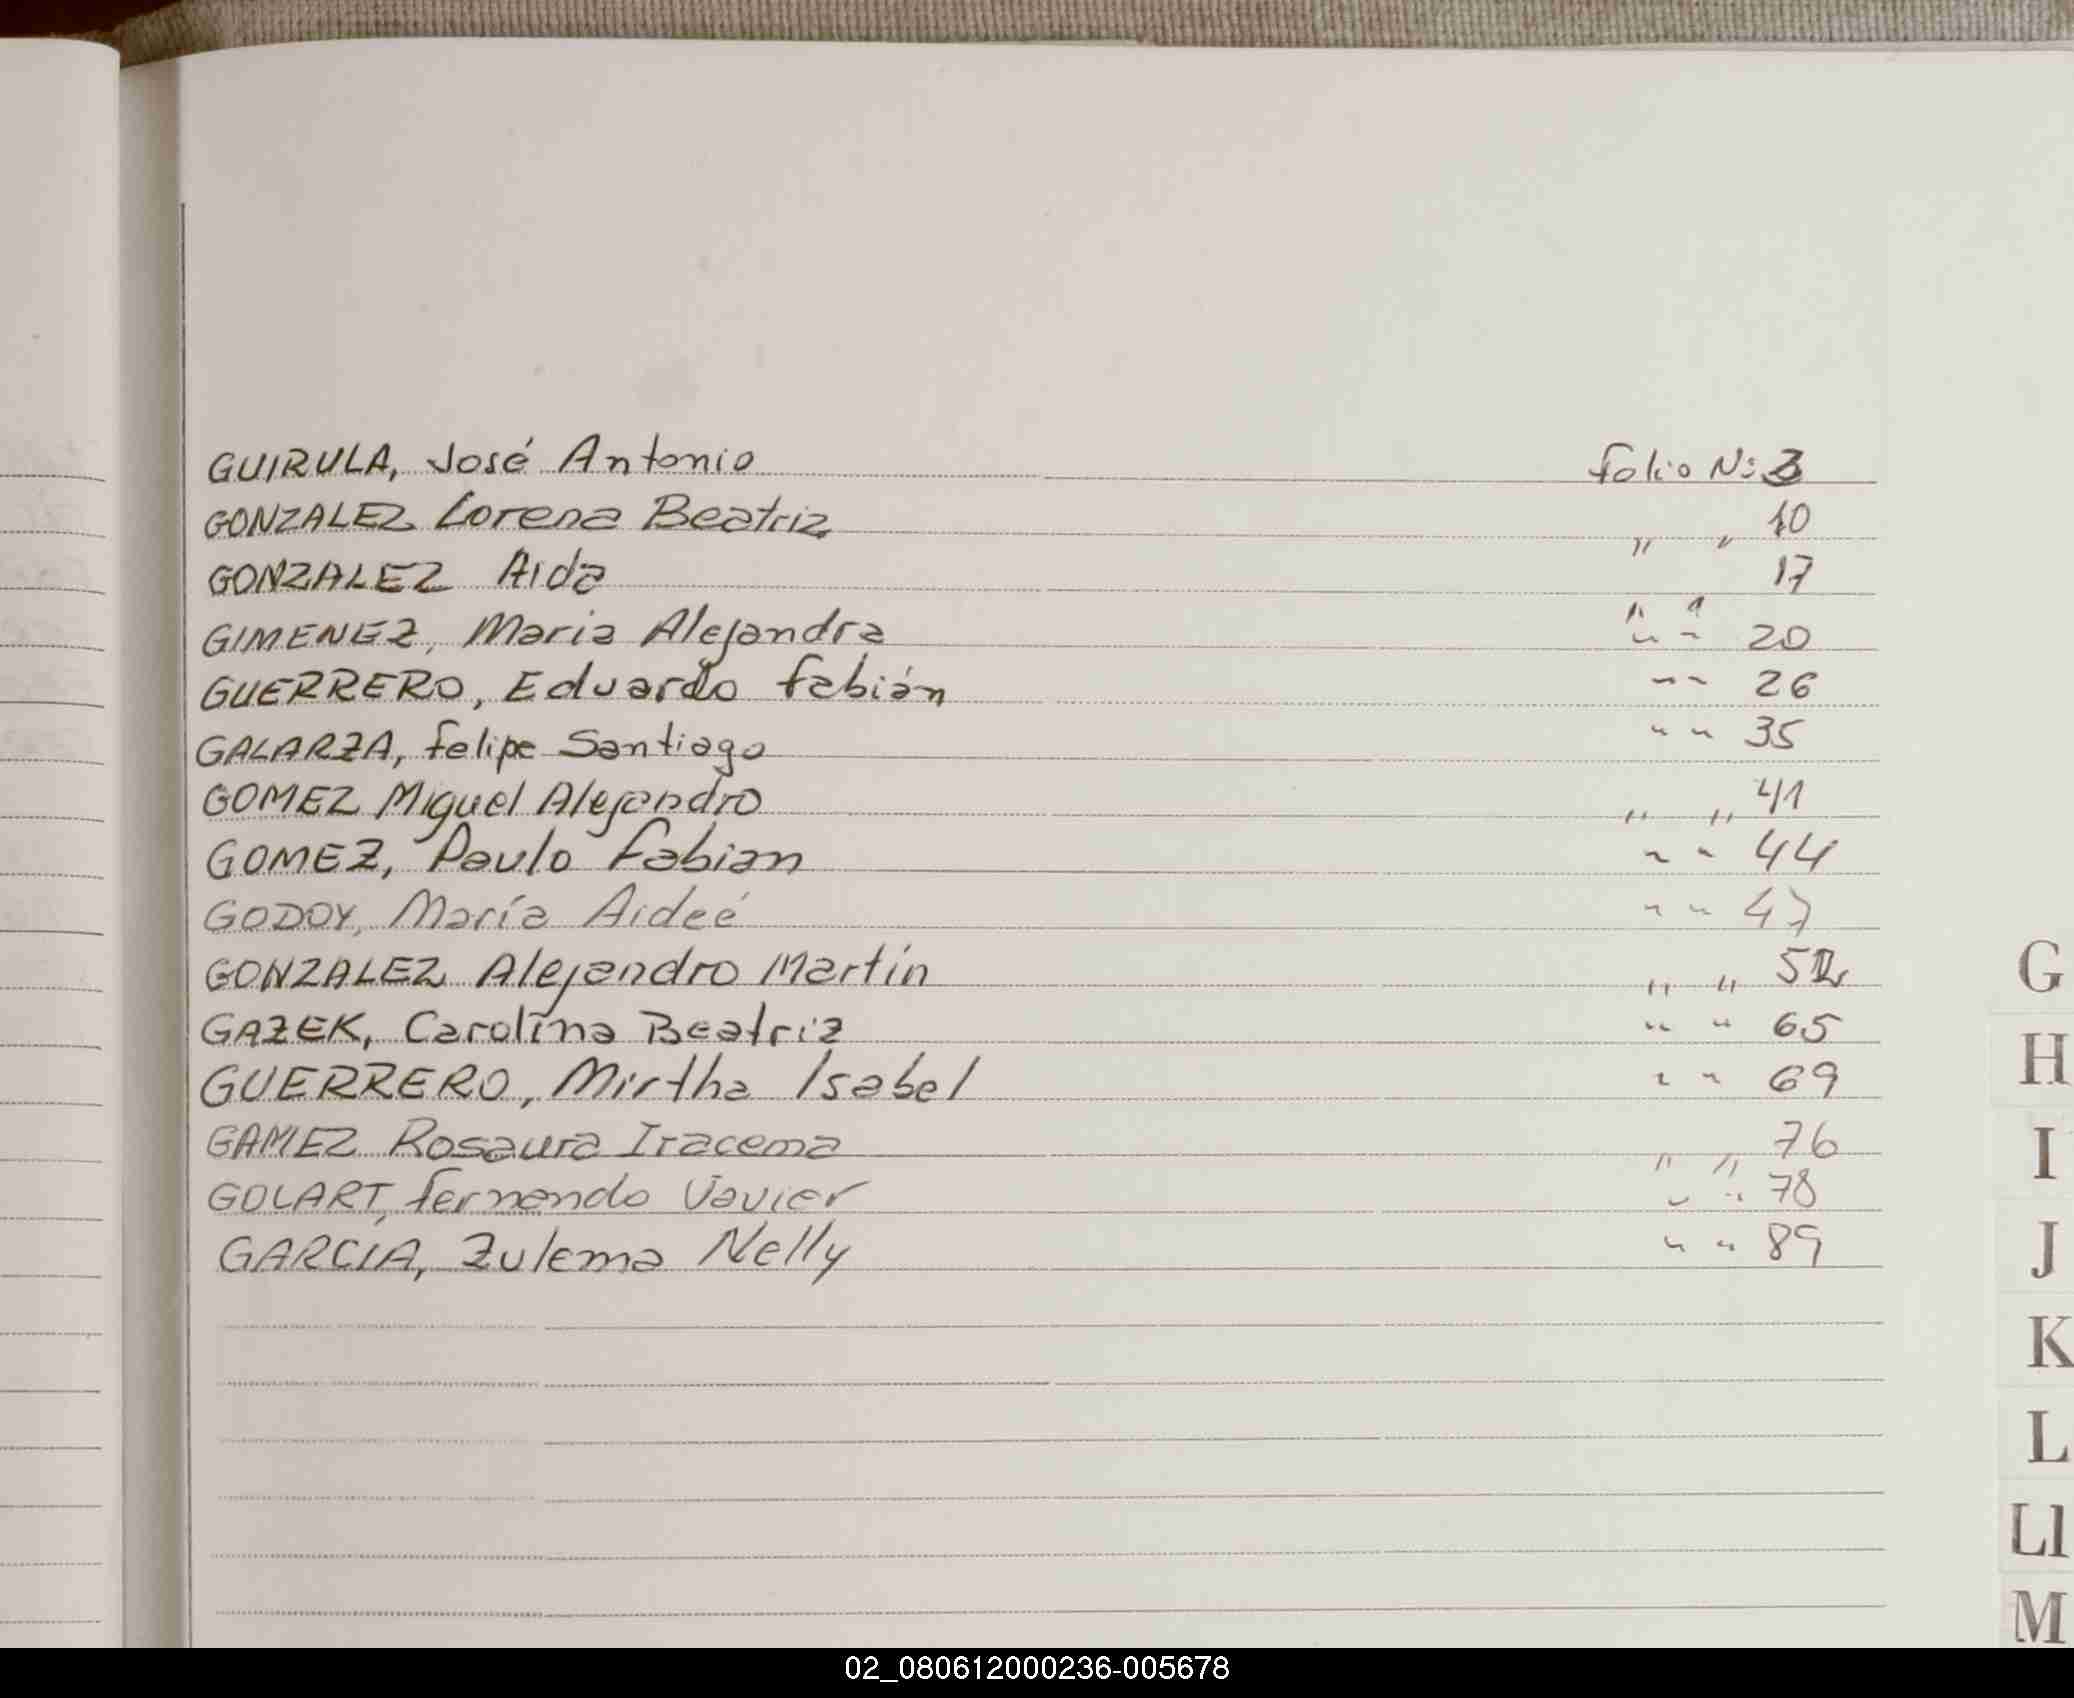 GUIRULA, José Antonio folio Nº 3
GONZALEZ Lorena Beatriz " " 10
GONZALEZ Aida " " 17
GIMENEZ, Maria Alejandra " " 20
GUERRERO, Eduardo fabián " " 26
GALARZA, felipe Santiago " " 35
GOMEZ Miguel Alejandro " " 41
GOMEZ, Paulo fabian " " 44
GODOY, María Aideé " " 47
GONZALEZ Alejandro Martín " "
GAZEK, Carolina Beatriz " " 65
GUERRERO, Mirtha Isabel " " 69
GAMEZ Rosaura Iracema " " 76
GOLART, fernando Javier " " 78
GARCIA, Zulema Nelly " " 89
G
H
I
J
K
L
Ll
M
02_080612000236-005678